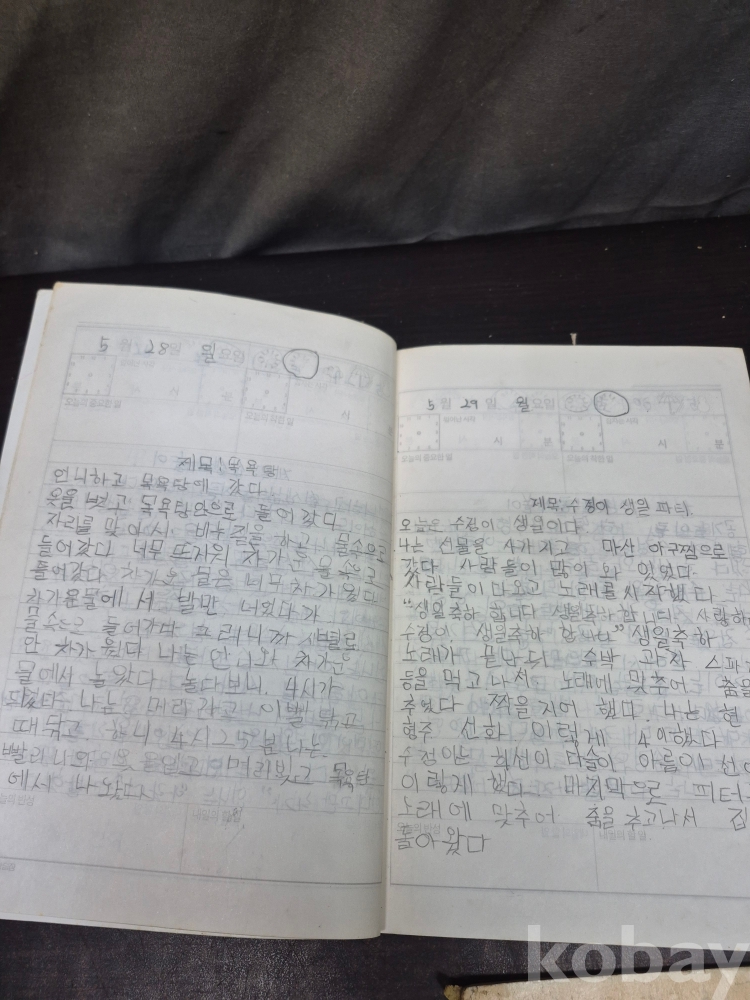 5월 28일 월요일
시 분
시
제목: 목욕탕
언니하고 목욕탕에 갔다
옷을 벗고 목욕탕안으로 들어갔다
자리를 맞아서 비누길을 하고 물속으로
들어갔다 너무 뜨거워 차가운 물속으로
들어갔다 차가운 물은 너무차가웠다
참가운물에서 발만 너었다가
물속으로 들어가다 그러니까 시별로
안 차가웠다 나는 언니와 차가운
물에서 놀았다 놀다보니 4시가
되었다 나는 머리 감고 이빨 닦고
때닦고 하니 4시 25분 나는
빨리 니와 옷을입고 머리빗고 목욕탕
에서 나왔다
5월 29일 월요일
시 분
시 분
제목: 수정이 생일 파티
오늘은 수정이 생일이다
나는 선물을 4가지고 마산 아구찜으로
갔다 사람들이 많이 와 있었다
사람들이 다오고 노래를 시작했다
"생일축하 합니다 생일축하합니다 사랑하
수정이 생일축하 합니다" 생일축하
노래가 끝난뒤 수박 과자 스파
등을 먹고 나서 노래에 맞추어 춤을
추었다 짝을지어 했다. 나는 현
현주 선화 이렇게 4이했다
수정이는 희선이 다슬이 아름이 선
이렇게 했다 마지막으로 피터
노래에 맞추어 춤을 추고나서 집
돌아왔다
kobay